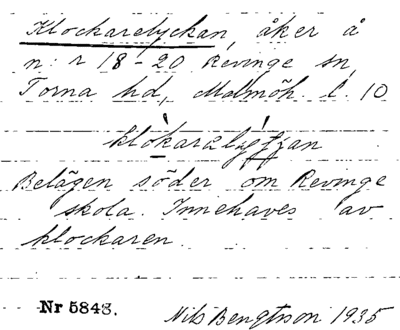 Klockarelyckan, åker å
n:r 18-20 Revinge sn,
Torna hd, Malmöh. l. 10
Belägen söder om Revinge
skola. Innehaves av
klockaren
Nr 5848.
Nils Bengtsson 1935